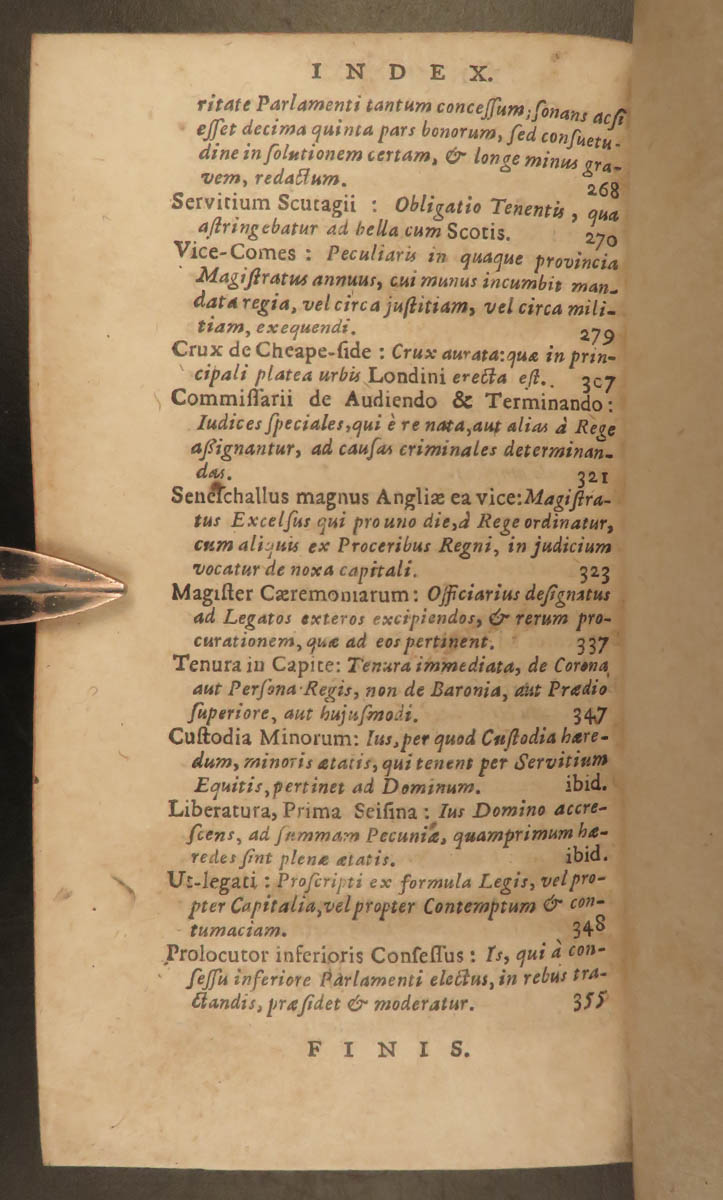 INDEX.
ritate Parlamenti tantum conceſſum; ſonans acſi
eſſet decima quinta pars bonorum, ſed conſuetu-
dine in ſolutionem certam, & longe minus gra-
vem, redactum. 268
Servitium Scutagii : Obligatio Tenentis, qua
aſtringebatur ad bella cum Scotis. 270
Vice-Comes : Peculiaris in quaque provincia
Magiſtratus annuus, cui munus incumbit man-
data regia, vel circa juſtitiam, vel circa mili-
tiam, exequendi. 279
Crux de Cheape-ſide : Crux aurata: quæ in prin-
cipali platea urbis Londini erecta eſt. 307
Commiſſarii de Audiendo & Terminando:
Iudices ſpeciales, qui è re nata, aut alias à Rege
aſsignantur, ad cauſas criminales determinan-
das. 321
Seneſchallus magnus Angliæ ea vice: Magiſtra-
tus Excelſus qui pro uno die, à Rege ordinatur,
cum aliquis ex Proceribus Regni, in judicium
vocatur de noxa capitali. 323
Magiſter Cæremoniarum: Officiarius deſignatus
ad Legatos exteros excipiendos, & rerum pro-
curationem, quæ ad eos pertinent. 337
Tenura in Capite: Tenura immediata, de Corona
aut Perſona Regis, non de Baronia, aut Prædio
ſuperiore, aut hujuſmodi. 347
Cuſtodia Minorum: Ius, per quod Cuſtodia hære-
dum, minoris ætatis, qui tenent per Servitium
Equitis, pertinet ad Dominum. ibid.
Liberatura, Prima Seiſina : Ius Domino accre-
ſcens, ad ſummam Pecuniæ, quamprimum hæ-
redes ſint plenæ ætatis. ibid.
Ut-legati : Proſcripti ex formula Legis, vel pro-
pter Capitalia, vel propter Contemptum & con-
tumaciam. 348
Prolocutor inferioris Conſeſſus : Is, qui à con-
ſeſſu inferiore Parlamenti electus, in rebus tra-
ctandis, præſidet & moderatur. 355
FINIS.